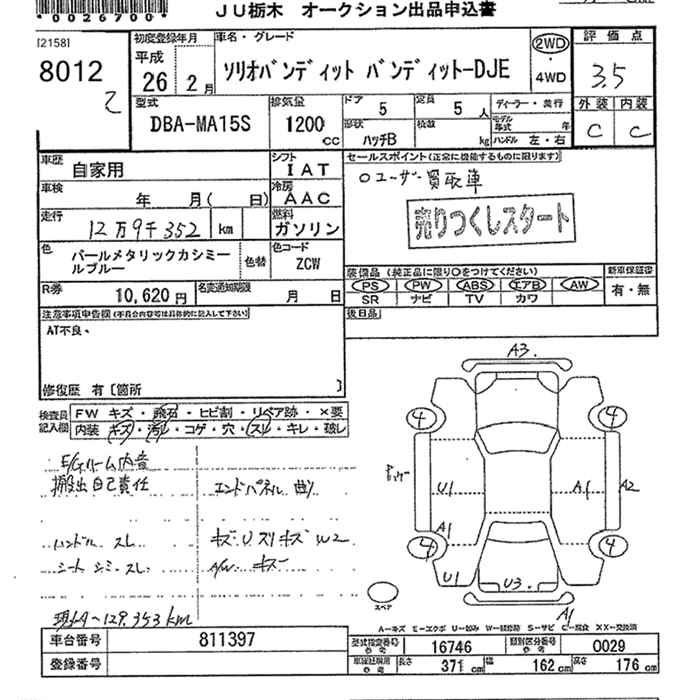 *0026700*
JU栃木 オークション出品申込書
[2158]
8012
2
初度登録年月
平成
26 2月
車名・グレード
ソリオバンディット バンディット-DJE
2WD
・
4WD
評価点
3.5
外装 内装
C C
型式
DBA-MA15S
排気量
1200
cc
ドア 5
定員 5 人
形状 ハッチB
積数 kg
ディーラー・並行
モデル年式 年
ハンドル 左・右
車歴 自家用
シフト IAT
車検 年 月( 日)
冷房 AAC
走行 12万9千352 km
燃料 ガソリン
色 パールメタリックカシミールブルー
色替
色コード ZCW
R券 10,620円
名変通知期限 月 日
セールスポイント(正常に機能するものに限ります)
○ユーザー買取車
売りつくしスタート
装備品(純正品に限り○をつけてください)
PS PW ABS エアB AW
SR ナビ TV カワ
新車保証書
有・無
後日品
注意事項申告欄(不具合内容等は具体的に記入して下さい)
AT不良、
修復歴 有〔箇所 〕
検査員記入欄
FW キズ・飛石・ヒビ割・リペア跡・×要
内装 キズ・汚れ・コゲ・穴・スレ・キレ・破レ
E/gルーム内音
搬出自己責任
エンドパネル曲り
ハンドル スレ
キズ U スリキズ W2
シート シミ・スレ
A/W キズ
現状~129,353km
A3
4 4
U1 A1 A2
A1
4 4
U1 U3
A1
スペア
A-キズ E-エクボ U-凹み W-補修跡 S-サビ C-腐食 XX-交換済
車台番号 811397
登録番号
型式指定番号 参考 16746
類別区分番号 参考 0029
車検証記載用 参考 長さ 371cm 幅 162cm 高さ 176cm